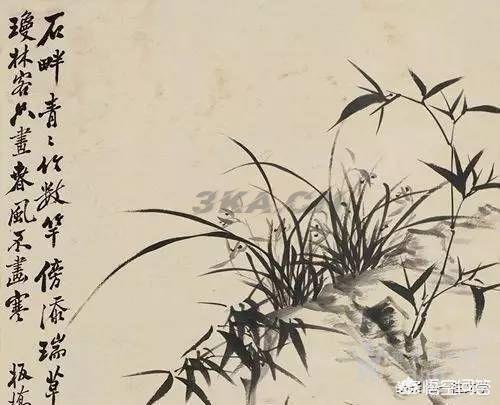 石畔青〻竹數竿傍添瑞草
瓊林客只畫春風不畫寒 板橋
悟空问答